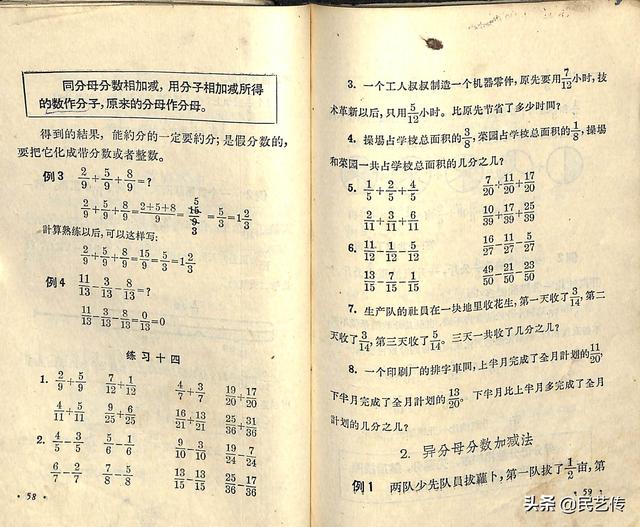 同分母分数相加减，用分子相加减所得
的数作分子，原来的分母作分母。
得到的結果，能約分的一定要約分；是假分数的，
要把它化成带分数或者整数。
例3 2/9+5/9+8/9=?
2/9+5/9+8/9=(2+5+8)/9=15/9=5/3=1 2/3
計算熟练以后，可以这样写：
2/9+5/9+8/9=15/9=5/3=1 2/3
例4 11/13-3/13-8/13=?
11/13-3/13-8/13=0/13=0
练习十四
1. 2/9+5/9 7/12+1/12 4/7+3/7 19/20+17/20
4/11+5/11 9/25+6/25 16/21+13/21 25/36+31/36
2. 4/5-3/5 5/6-1/6 9/10-3/10 19/24-7/24
6/7-2/7 7/8-5/8 13/15-8/15 25/36-17/36
·58·
3. 一个工人叔叔制造一个机器零件，原先要用7/12小时，技
术革新以后，只用5/12小时。比原先节省了多少时間？
4. 操場占学校总面积的3/8，菜园占学校总面积的1/8，操場
和菜园一共占学校总面积的几分之几？
5. 1/5+2/5+4/5 7/20+11/20+17/20
2/11+3/11+6/11 10/39+17/39+25/39
6. 11/12-1/12-5/12 16/27-11/27-5/27
13/15-7/15-1/15 49/50-21/50-23/50
7. 生产队的社員在一块地里收花生，第一天收了3/14，第二
天收了3/14，第三天收了5/14。三天一共收了几分之几？
8. 一个印刷厂的排字車間，上半月完成了全月計划的11/20，
下半月完成了全月計划的13/20。下半月比上半月多完成了全月
計划的几分之几？
2. 异分母分数加减法
例1 两队少先队員拔蘿卜，第一队拔了1/2亩，第
·59·
头条 @民艺传